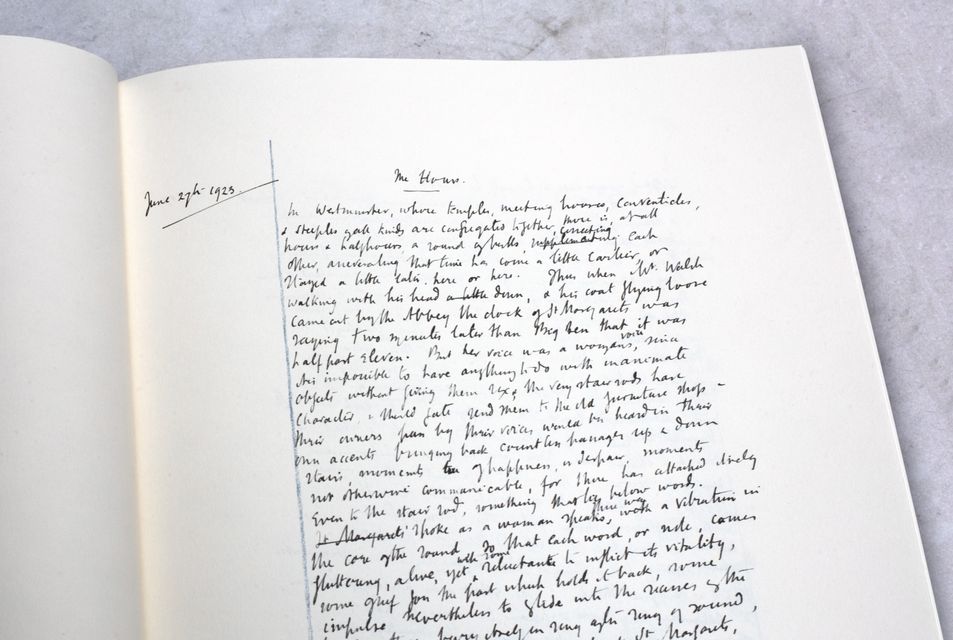 June 27th 1923.
The Hours.
In Westminster, where temples, meeting houses, conventicles,
& steeples of all kinds are congregated together, there is at all
hours & halfhours a round of bells, correcting supplementing each
other, asseverating that time has come a little earlier, or
stayed a little later, here or here. Thus when Mr. Walsh
walking with his head a little down, & his coat flying loose
came out by the Abbey the clock of St Margarets was
saying two minutes later than Big Ben that it was
half past eleven. But her voice was a woman's voice, since
it is impossible to have anything to do with inanimate
objects without giving them sex; the very stair rods have
character, & should fate send them to the old furniture shops -
their owners pass by their voices would be heard in their
own accents bringing back countless passages up & down
stairs, moments of happiness, or despair, moments
not otherwise communicable, for there has attached itself
Even to the stair rod, something that lies below words.
St Margarets spoke as a woman speaks, there was with a vibration in
the core of the sound so that each word, or note, comes
fluttering, alive, yet with some reluctance to inflict its vitality,
some grief for the past which holds it back, some
impulse nevertheless to glide into the recesses of the
itself in ring after ring of sound,
St Margarets,